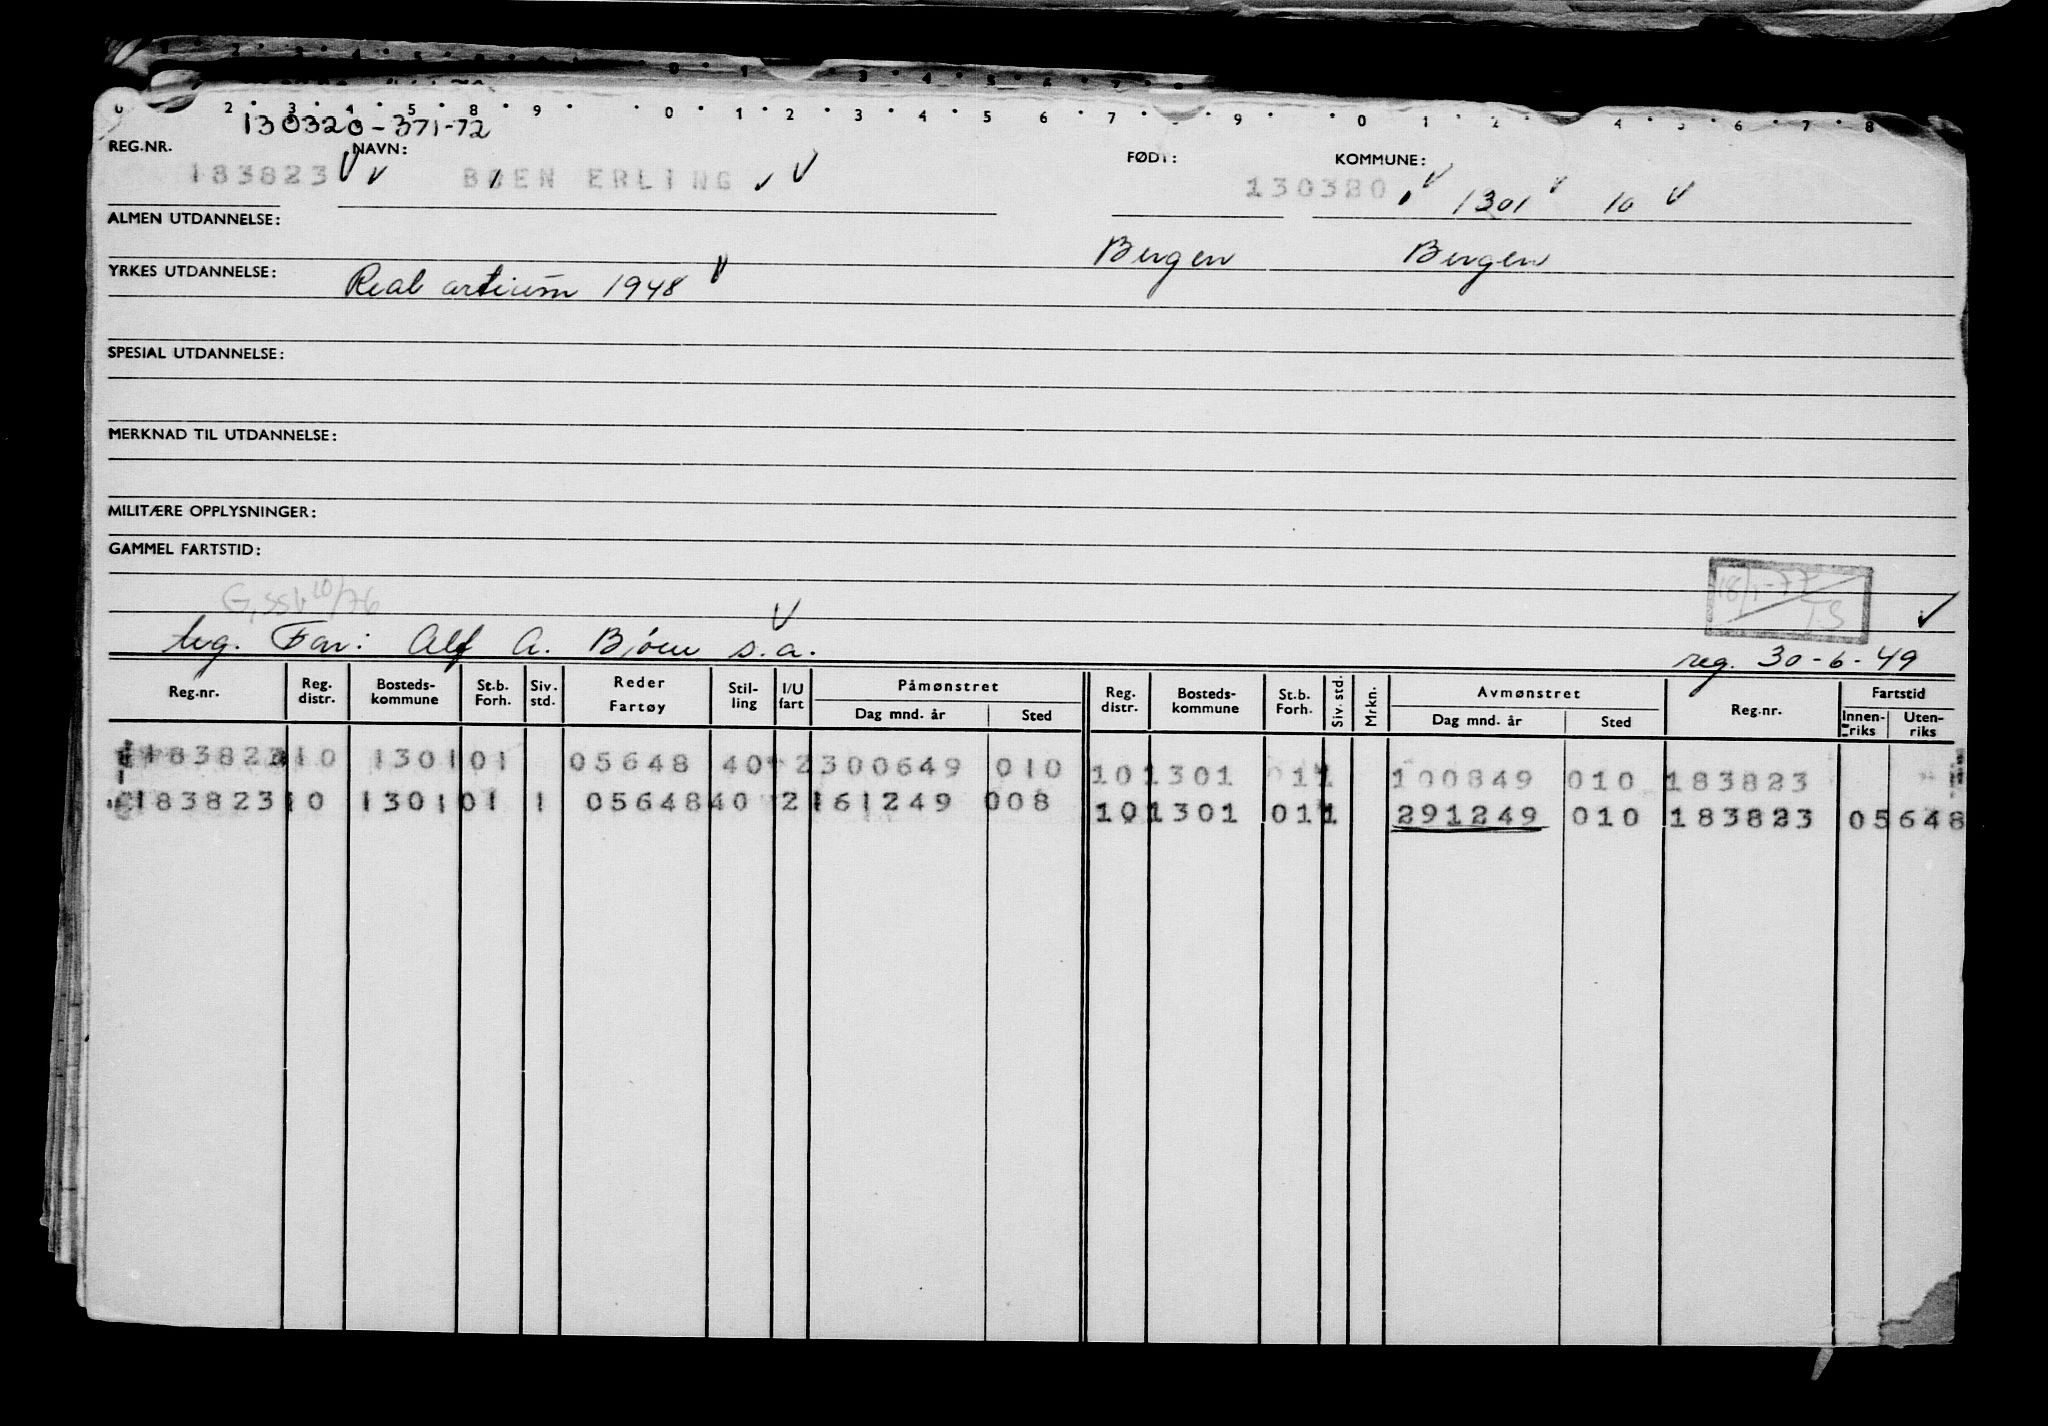 130320-371-72
REG.NR. NAVN: FØDT: KOMMUNE:
183823 BØEN ERLING 130320 1301 10
ALMEN UTDANNELSE:
Bergen Bergen
YRKES UTDANNELSE: Real artium 1948
SPESIAL UTDANNELSE:
MERKNAD TIL UTDANNELSE:
MILITÆRE OPPLYSNINGER:
GAMMEL FARTSTID:
18/1-77
TS
Far: Alf A. Bjöen s.a. reg. 30-6-49
Reg.nr. Reg. distr. Bosteds-kommune St.b. Forh. Siv. std. Reder Fartøy Stil-ling I/U fart Påmønstret Dag mnd. år Sted Reg. distr. Bosteds-kommune St.b. Forh. Siv. std. Mrkn. Avmønstret Dag mnd. år Sted Reg.nr. Fartstid Innen-riks Uten-riks
183823 10 1301 01 05648 40 2 300649 010 10 1301 01 1 100849 010 183823
183823 10 1301 01 1 05648 40 2 161249 008 10 1301 01 1 291249 010 183823 05648